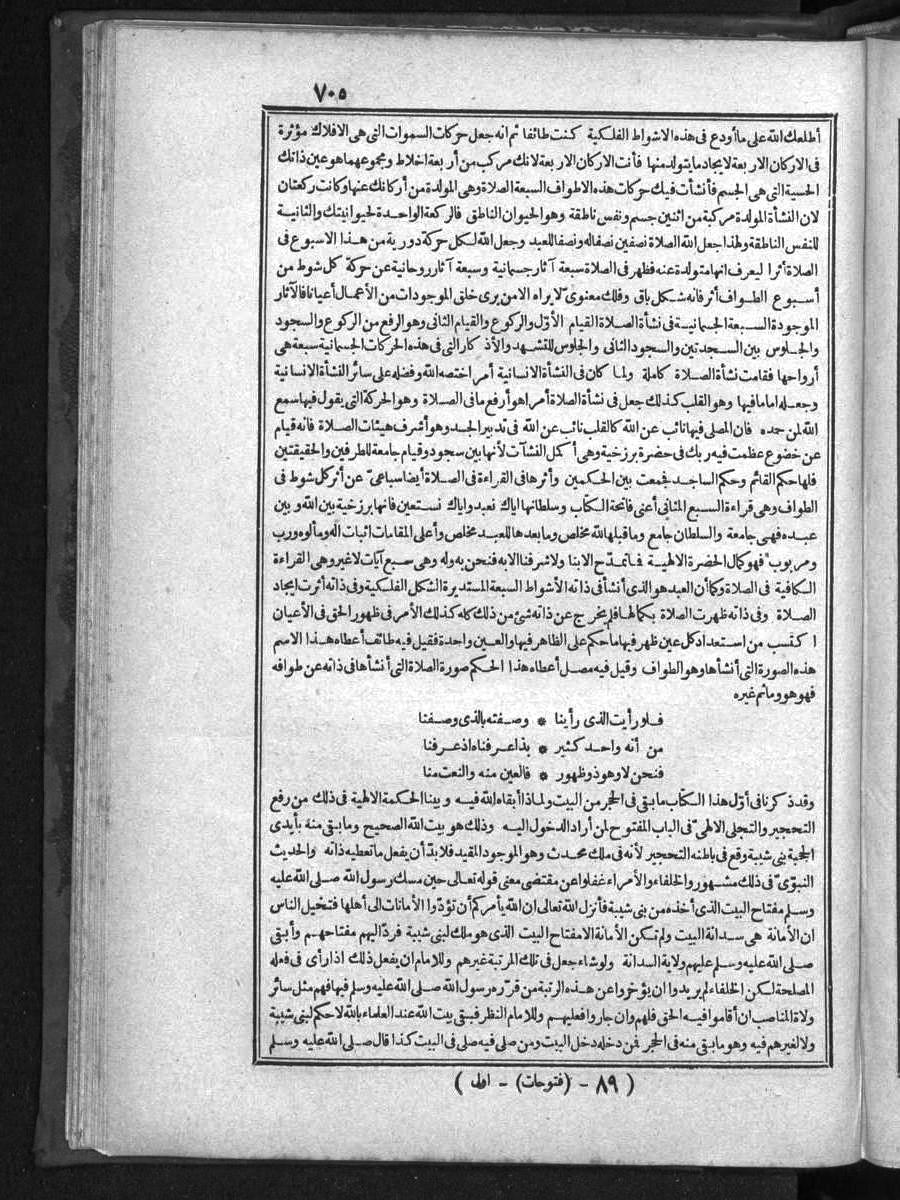 ٧٠٥
أطلعك الله على ما أودع فى هذه الاشواط الفلكية كنت طائفا ثم انه جعل حركات السموات التى هى الافلاك مؤثرة
فى الاركان الاربعة لايجاد ما يتولد منها فأنت الاركان الاربعة لانك مركب من أربعة اخلاط ومجموعهما هو عين ذاتك
الحسية التى هى الجسم فأنشأت فيك حركات هذه الاطواف السبعة الصلاة وهى المولدة من أركانك عنها وكانت ركعتان
لان النشأة المولدة مركبة من اثنين جسم ونفس ناطقة وهو الحيوان الناطق فالركعة الواحدة لحيوانيتك والثانية
للنفس الناطقة ولهذا جعل الله الصلاة نصفين نصفا له ونصفا للعبد وجعل الله لكل حركة دورية من هذا الاسبوع فى
الصلاة أثرا ليعرف انها متولدة عنه فظهر فى الصلاة سبعة آثار جسمانية وسبعة آثار روحانية عن حركة كل شوط من
أسبوع الطواف أثر فانه شكل باق وفلك معنوى لا يراه الا من يرى خلق الموجودات من الأعمال أعيانا فالآثار
الموجودة السبعة الجسمانية فى نشأة الصلاة القيام الأوّل والركوع والقيام الثانى وهو الرفع من الركوع والسجود
والجلوس بين السجدتين والسجود الثانى والجلوس للتشهد والأذكار التى فى هذه الحركات الجسمانية سبعة هى
أرواحها فقامت نشأة الصلاة كاملة ولما كان فى النشأة الانسانية أمر اختصه الله وفضله على سائر النشأة الانسانية
وجعله اماما فيها وهو القلب كذلك جعل فى نشأة الصلاة أمرا هو أرفع ما فى الصلاة وهو الحركة التى يقول فيها سمع
الله لمن حمده فان المصلى فيها نائب عن الله كالقلب نائب عن الله فى تدبير الجسد وهو أشرف هيئات الصلاة فانه قيام
عن خضوع عظمت فيه ربك فى حضرة برزخية وهى أكمل النشآت لأنها بين سجود وقيام جامعة للطرفين والحقيقتين
فلها حكم القائم وحكم الساجد فجمعت بين الحكمين وأثرها فى القراءة فى الصلاة أيضا سباعىّ عن أثر كل شوط فى
الطواف وهى قراءة السبع المثانى أعنى فاتحة الكتاب وسلطانها اياك نعبد واياك نستعين فانها برزخية بين الله و بين
عبده فهى جامعة والسلطان جامع وما قبلها لله مخلص وما بعدها للعبد مخلص وأعلى المقامات اثبات اله ومألوه ورب
ومربوب فهو كمال الحضرة الالهية فما تمدّح الا بنا ولا شرفنا الا به فنحن به وله وهى سبع آيات لا غير وهى القراءة
الكافية فى الصلاة وكما أن العبد هو الذى أنشأ فى ذاته الأشواط السبعة المستديرة الشكل الفلكية وفى ذاته أثرت ايجاد
الصلاة وفى ذاته ظهرت الصلاة بكمالها فلم يخرج عن ذاته شئ من ذلك كله كذلك الأمر فى ظهور الحق فى الأعيان
اكتسب من استعداد كل عين ظهر فيها ما حكم على الظاهر فيها والعين واحدة فقيل فيه طائف أعطاه هذا الاسم
هذه الصورة التى أنشأها وهو الطواف وقيل فيه مصل أعطاه هذا الحكم صورة الصلاة التى أنشأها فى ذاته عن طوافه
فهو هو وما ثم غيره
فلو رأيت الذى رأينا * وصفته بالذى وصفنا
من أنه واحد كثير * بذا عرفناه اذ عرفنا
فنحن لا وهو ذو ظهور * فالعين منه والنعت منا
وقد ذكرنا فى أوّل هذا الكتاب ما بقى فى الحجر من البيت ولماذا أبقاه الله فيه و بينا الحكمة الالهية فى ذلك من رفع
التحجير والتجلى الالهىّ فى الباب المفتوح لمن أراد الدخول اليه وذلك هو بيت الله الصحيح وما بقى منه بأيدى
الحجبة بنى شيبة وقع فى باطنه التحجير لأنه فى ملك محدث وهو الموجود المقيد فلا بدّ أن يفعل ما تعطيه ذاته والحديث
النبوّى فى ذلك مشهور والخلفاء والأمراء غفلوا عن مقتضى معنى قوله تعالى حين مسك رسول الله صلى الله عليه
وسلم مفتاح البيت الذى أخذه من بنى شيبة فأنزل الله تعالى ان الله يأمركم أن تؤدّوا الأمانات الى أهلها فتخيل الناس
ان الأمانة هى سدانة البيت ولم تكن الأمانة الا مفتاح البيت الذى هو ملك لبنى شيبة فردّ اليهم مفتاحهم وأبقى
صلى الله عليه وسلم عليهم ولاية السدانة ولو شاء جعل فى تلك المرتبة غيرهم وللامام ان يفعل ذلك اذا رأى فى فعله
المصلحة لكن الخلفاء لم يريدوا ان يؤخروا عن هذه الرتبة من قرّره رسول الله صلى الله عليه وسلم فيها فهم مثل سائر
ولاة المناصب ان أقاموا فيه الحق فلهم وان جاروا فعليهم وللامام النظر فبقى بيت الله عند العلماء بالله لا حكم لبنى شيبة
ولا لغيرهم فيه وهو ما بقى منه فى الحجر فمن دخله دخل البيت ومن صلى فيه صلى فى البيت كذا قال صلى الله عليه وسلم
( ٨٩ - (فتوحات) - اول )